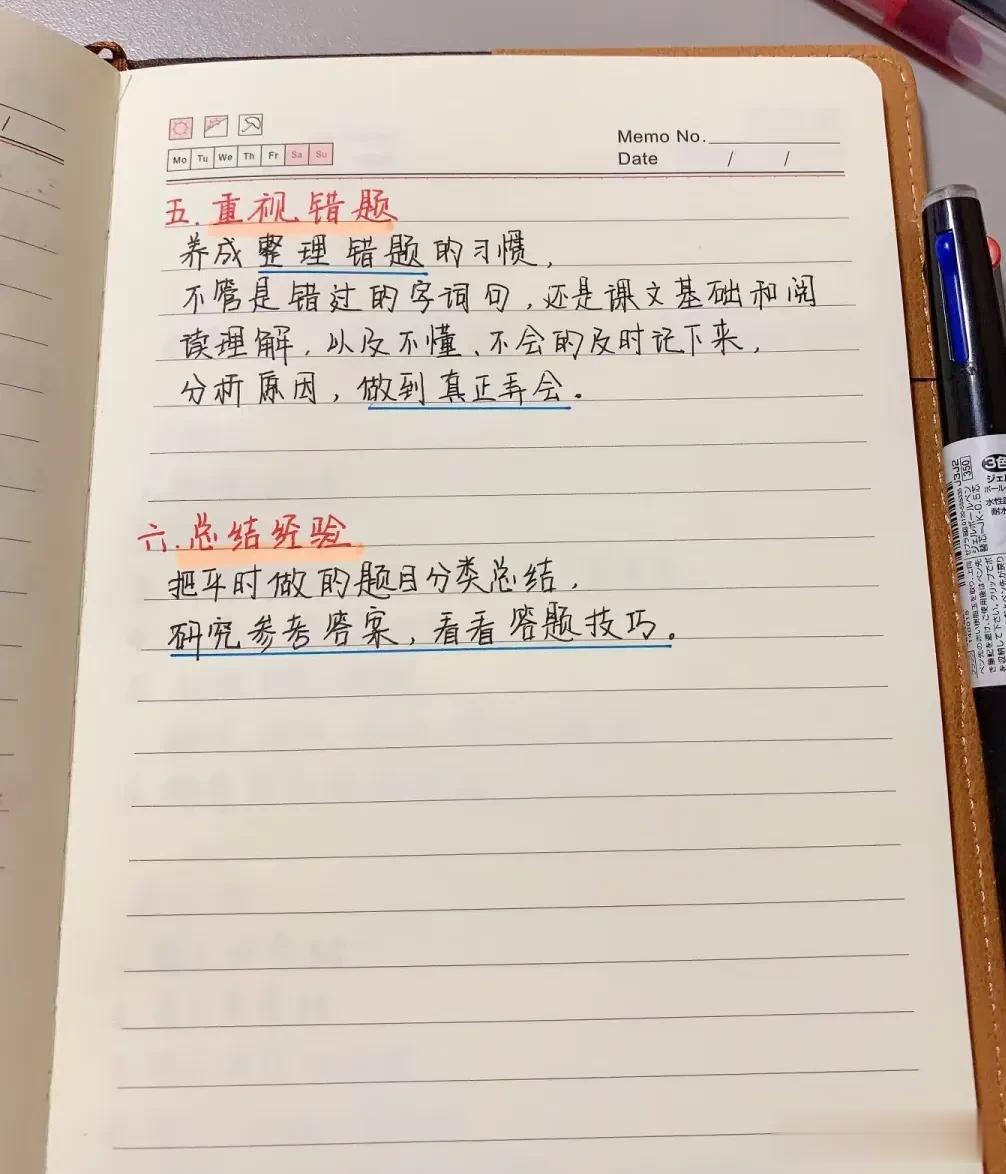 Mo Tu We Th Fr Sa Su
Memo No.
Date / /
五.重视错题
养成整理错题的习惯,
不管是错过的字词句,还是课文基础和阅
读理解,以及不懂、不会的及时记下来,
分析原因,做到真正弄会。
六.总结经验
把平时做的题目分类总结,
研究参考答案,看看答题技巧。
3色
350